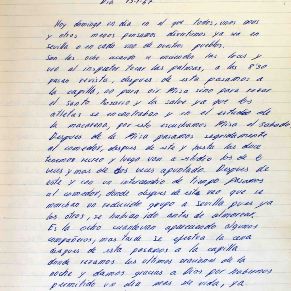 Hoy domingo un día en el que todos, unos mas
y otros menos pensamos divertirnos ya sea en
sevilla o en cada uno de nuestros pueblos.
Son las ocho cuando se encienden las luces y
el inspector tocar las palmas, a las 8'30
pasar revista, después de esto pasamos a
la capilla, no para oir Misa sino para rezar
el santo Rosario y la salve ya que los
atletas se encontraban en el estadio de
la macarena, por esto escuchamos Misa el sabado.
Despues de la Misa pasamos seguidamente
al comedor, despues de este y hasta las doce
tenemos recreo y luego van a estudio los de 6
veces y mas de dos veces apuntado. Despues de
este y con un intermedio de tiempo pasamos
al comedor, donde despues de esto que se
marchan un reducido grupo a sevilla pues ya
los otros, se habían ido antes de almorzar.
Es la ocho cuando van apareciendo algunos
compañeros, mas tarde se efectua la cena
despues de esta pasamos a la capilla
donde rezamos las ultimas oraciones de la
noche y damos gracias a Dios por habernos
permitido un día mas de vida, ya